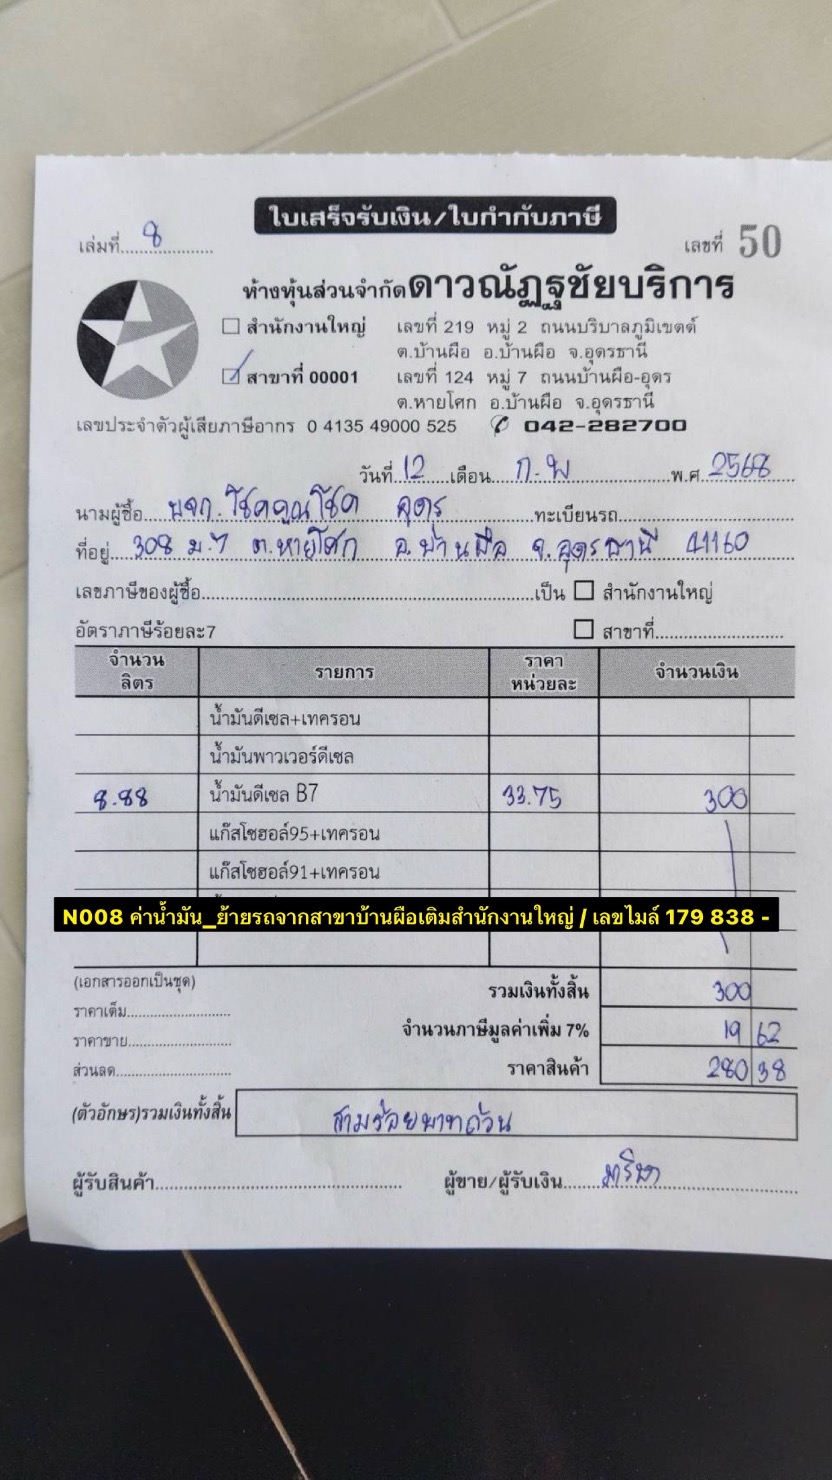 ใบเสร็จรับเงิน/ใบกำกับภาษี
เล่มที่ 8 เลขที่ 50
ห้างหุ้นส่วนจำกัดดาวณัฏฐชัยบริการ
☐ สำนักงานใหญ่ เลขที่ 219 หมู่ 2 ถนนบริบาลภูมิเขตต์
ต.บ้านผือ อ.บ้านผือ จ.อุดรธานี
☑ สาขาที่ 00001 เลขที่ 124 หมู่ 7 ถนนบ้านผือ-อุดร
ต.หายโศก อ.บ้านผือ จ.อุดรธานี
เลขประจำตัวผู้เสียภาษีอากร 0 4135 49000 525 ✆ 042-282700
วันที่ 12 เดือน ก.พ พ.ศ. 2568
นามผู้ซื้อ บจก. โชคคูณโชค อุดร ทะเบียนรถ
ที่อยู่ 308 ม.7 ต.หายโศก อ.บ้านผือ จ.อุดรธานี 41160
เลขภาษีของผู้ซื้อ เป็น ☐ สำนักงานใหญ่
อัตราภาษีร้อยละ7 ☐ สาขาที่
จำนวนลิตร รายการ ราคาหน่วยละ จำนวนเงิน
น้ำมันดีเซล+เทครอน
น้ำมันพาวเวอร์ดีเซล
8.88 น้ำมันดีเซล B7 33.75 300
แก๊สโซฮอล์95+เทครอน
แก๊สโซฮอล์91+เทครอน
N008 ค่าน้ำมัน_ย้ายรถจากสาขาบ้านผือเติมสำนักงานใหญ่ / เลขไมล์ 179 838 -
(เอกสารออกเป็นชุด) รวมเงินทั้งสิ้น 300
ราคาเต็ม
จำนวนภาษีมูลค่าเพิ่ม 7% 19 62
ราคาขาย
ส่วนลด ราคาสินค้า 280 38
(ตัวอักษร)รวมเงินทั้งสิ้น สามร้อยบาทถ้วน
ผู้รับสินค้า ผู้ขาย/ผู้รับเงิน